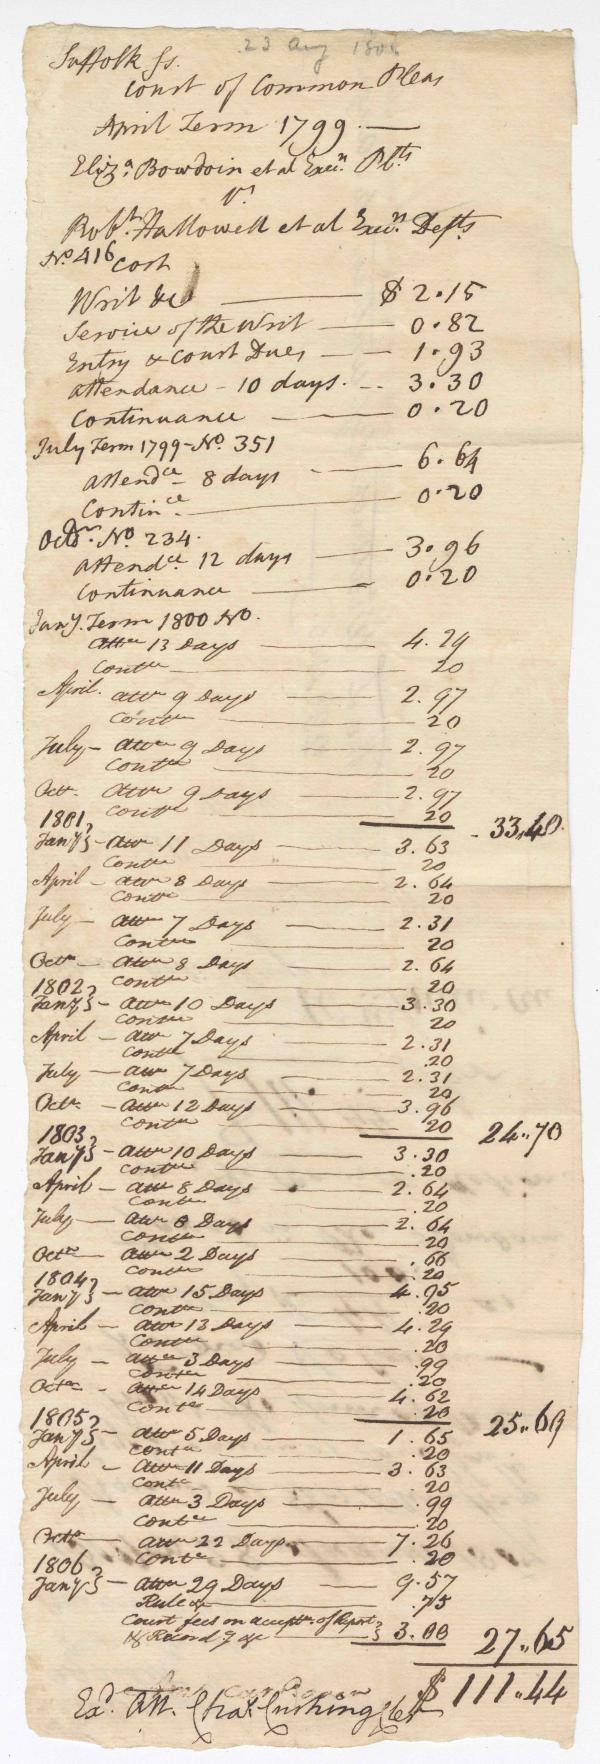 23 Aug 1806
Suffolk Ss.
Court of Common Pleas
April Term 1799. —
Eliz.ᵃ Bowdoin et al Exec.ⁿ Plts.
v.
Rob.ᵗ Hallowell et al Exec.ⁿ Defts
No. 416 Cost
Writ &c — $ 2.15
Service of the Writ — 0.82
Entry & Court Dues — 1.93
attendance - 10 days. -- 3.30
Continuance — 0.20
July Term 1799 - No. 351
6.64
attend.ᶜᵉ 8 days
Contin.ᶜᵉ — 0.20
Octo. No. 234.
attend.ᶜᵉ 12 days — 3.96
Continuance — 0.20
Jan.y Term 1800 No.
Attce 13 Days — 4.29
Contce — 20
April. attce 9 Days — 2.97
Contce — 20
July - attce 9 Days — 2.97
Contce — 20
Octr. attce 9 Days — 2.97
1801, Contce — 20 - 33,40.
Jany } - attce 11 Days — 3.63
Contce — 20
April - attce 8 Days — 2.64
Contce — 20
July - attce 7 Days — 2.31
Contce — 20
Octr - attce 8 Days — 2.64
1802, Contce — 20
Jany } - attce 10 Days — 3.30
Contce — 20
April - attce 7 Days — 2.31
Contce — .20
July - attce 7 Days — 2.31
Contce — 20
Octr - attce 12 Days — 3.96
1803, Contce — 20 24.70
Jany } - attce 10 Days — 3.30
Contce — .20
April - attce 8 Days — 2.64
Contce — .20
July - attce 8 Days — 2.64
Contce — 20
Octr - attce 2 Days — .66
1804, Contce — .20
Jany } - attce 15 Days — 4.95
Contce — .20
April - attce 13 Days — 4.29
Contce — .20
July - attce 3 Days — .99
Contce — .20
Octr - attce 14 Days — 4.62
1805, Contce — .20 25.69
Jany } - attce 5 Days — 1.65
Contce — .20
April - attce 11 Days — 3.63
Contce — .20
July - attce 3 Days — .99
Contce — .20
Octr - attce 22 Days — 7.26
1806, Contce — .20
Jany } - attce 29 Days — 9.57
Rule &c .75
Court fees on accept.ᵉ of Report }
& Record.g &c — 3.00 27.65
$ 111.44
Ex.ᵈ Att. Cha.ˢ Cushing Cler